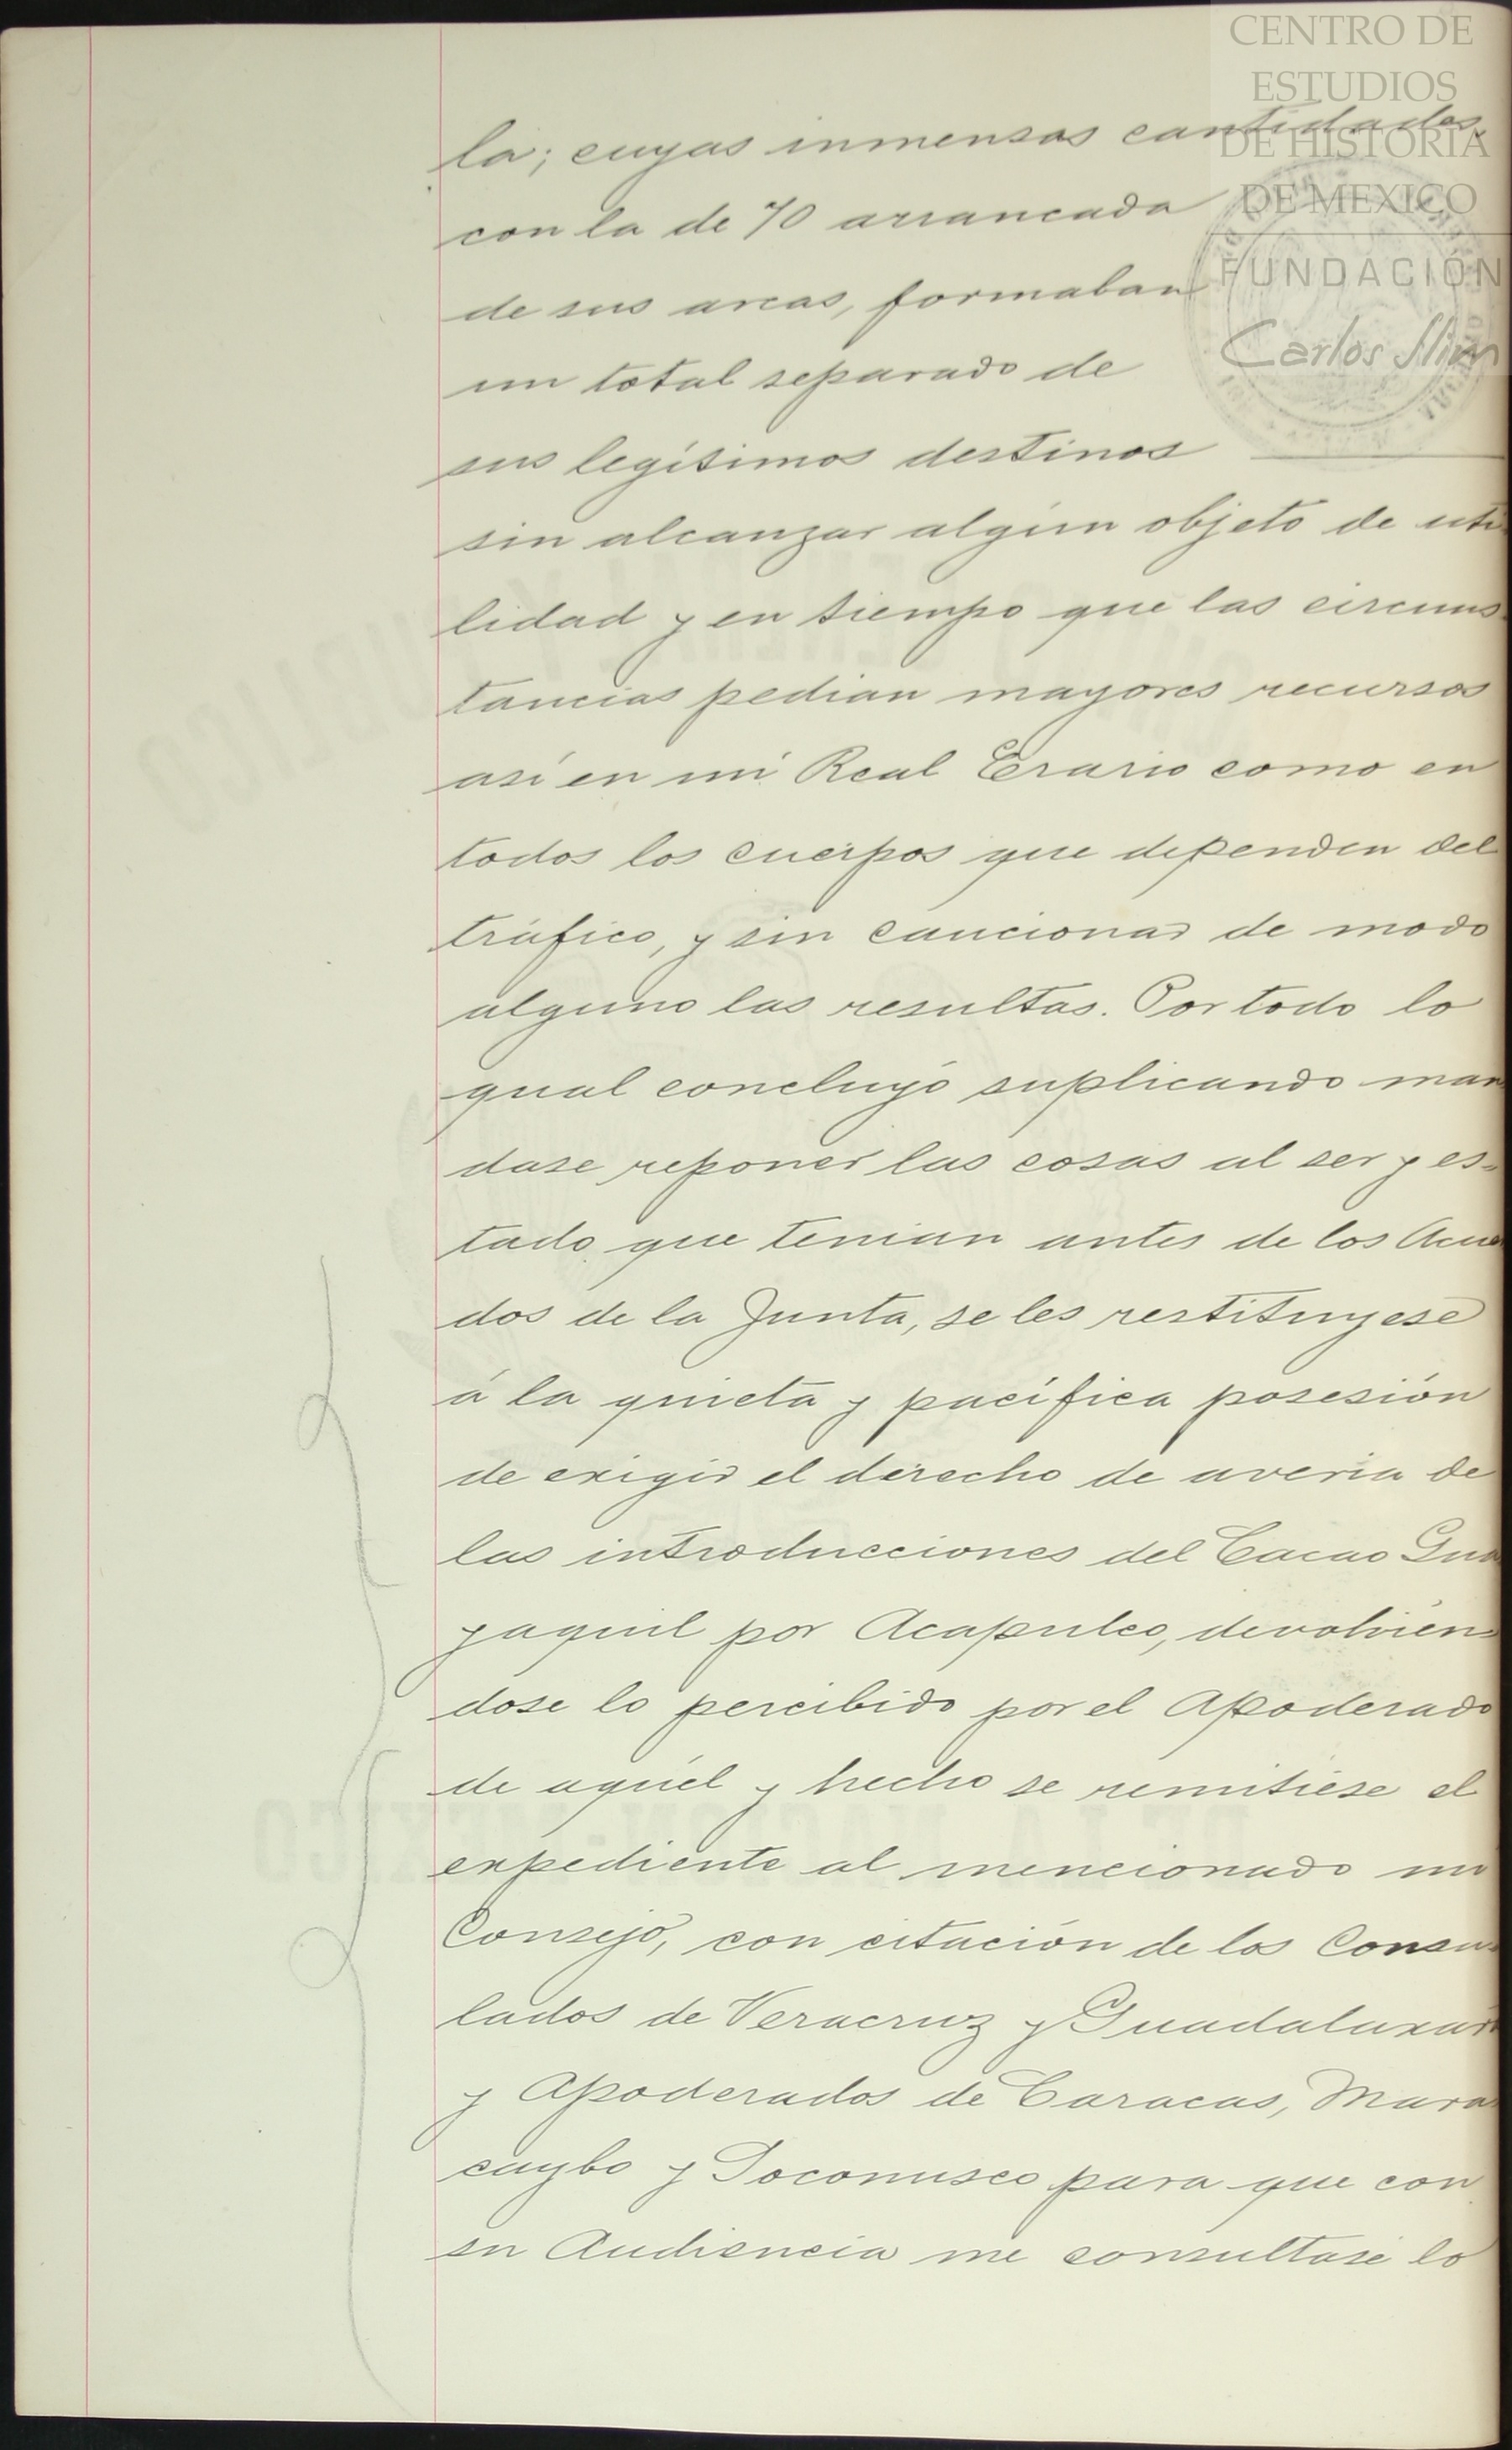 CENTRO DE
ESTUDIOS
DE HISTORIA
DE MEXICO
FUNDACIÓN
Carlos Slim
la; cuyas inmensas cantidades,
con la de 70 arrancada
de sus arcas, formaban
un total separado de
sus legítimos destinos
sin alcanzar algún objeto de uti
lidad y en tiempo que las circuns
tancias pedian mayores recursos
así en mi Real Erario como en
todos los cuerpos que dependen del
tráfico, y sin caucionar de modo
alguno las resultas. Por todo lo
qual concluyó suplicando man
dase reponer las cosas al ser y es-
tado que tenian antes de los Acuer
dos de la Junta, se les restituyese
á la quieta y pacífica posesión
de exigir el derecho de averia de
las introducciones del Cacao Gua
yaquil por Acapulco, devolvien-
dose lo percibido por el Apoderado
de aquél y hecho se remitiese el
expediente al mencionado mi
Consejo, con citación de los Consu-
lados de Veracruz y Guadalaxara
y Apoderados de Caracas, Mara
caybo y Soconusco para que con
su Audiencia me consultase lo